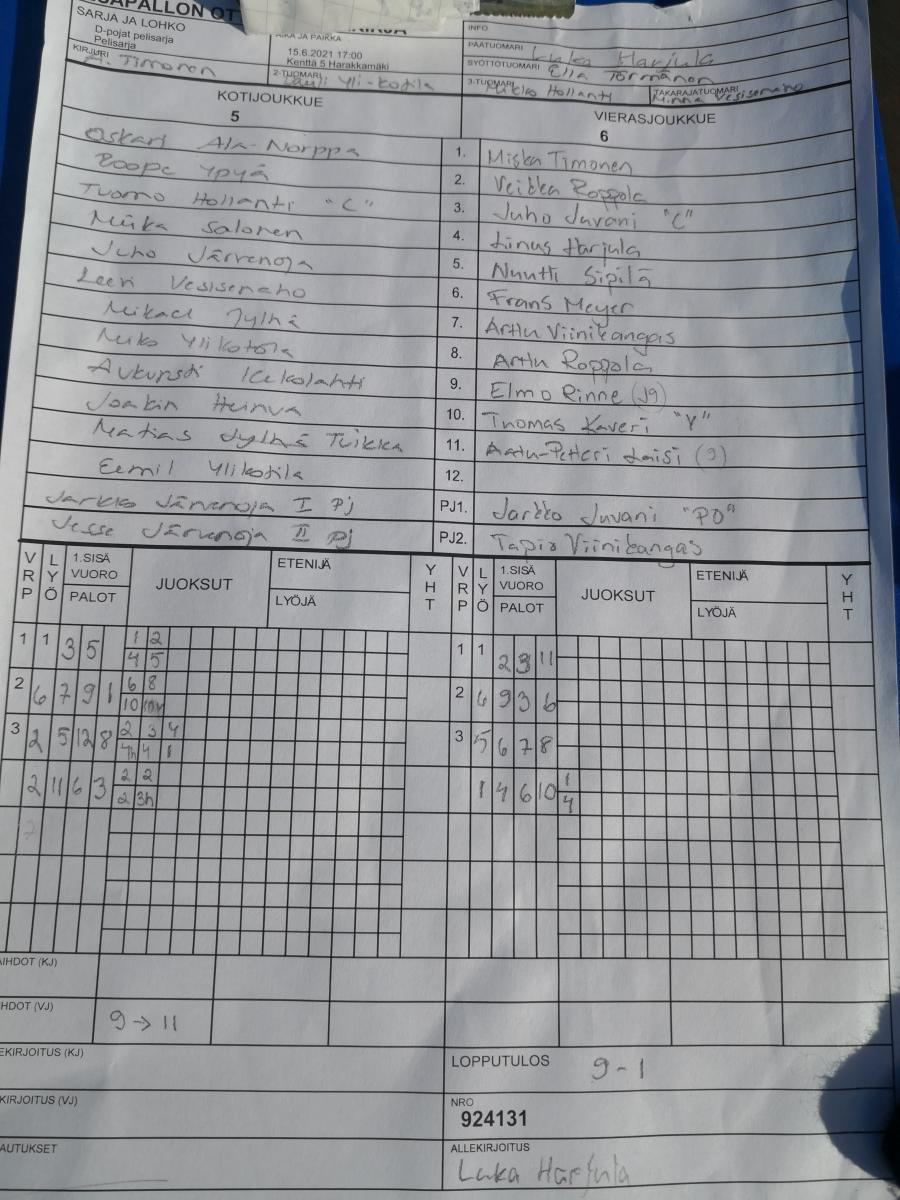 SARJA JA LOHKO
D-pojat pelisarja
Pelisarja
AIKA JA PAIKKA
15.6.2021 17:00
Kenttä 5 Harakkamäki
INFO
PÄÄTUOMARI Luka Harjula
SYÖTTÖTUOMARI Ella Törmänen
KIRJURI A. Timonen
2-TUOMARI Yli-kotila
3-TUOMARI Mikko Hollanti
TAKARAJATUOMARI Minna Vesisenaho
KOTIJOUKKUE
5
VIERASJOUKKUE
6
Oskari Ala-Norppa 1. Miska Timonen
Roope Ypyä 2. Veikka Roppola
Tuomo Hollanti "C" 3. Juho Juvani "C"
Miika Salonen 4. Linus Harjula
Juho Järvenoja 5. Nuutti Sipilä
Leevi Vesisenaho 6. Frans Meyer
Mikael Jylhä 7. Arttu Viinikangas
Miko Ylikotila 8. Arttu Roppola
Aukusti 9. Elmo Rinne (J9)
Joakin 10. Tuomas Kaveri "V"
Matias Jylhä Tuikka 11. Arttu-Petteri Laisi (9)
Eemil Ylikotila 12.
Jarkko Järvenoja I Pj PJ1. Jarkko Juvani "PO"
Jesse Järvenoja II Pj PJ2. Tapio Viinikangas
VRP LYÖ 1.SISÄ VUORO PALOT JUOKSUT ETENIJÄ LYÖJÄ YHT VRP LYÖ 1.SISÄ VUORO PALOT JUOKSUT ETENIJÄ LYÖJÄ YHT
1 1 3 5 1 2 1 1 2 3 11
4 5
2 6 7 9 1 6 8 2 6 9 3 6
10
3 2 5 12 8 2 3 4 3 5 6 7 8
7h 4 1
2 11 6 3 2 2 1 4 6 10 1
2 3h 4
IHDOT (KJ)
HDOT (VJ) 9 → 11
EKIRJOITUS (KJ)
LOPPUTULOS 9-1
KIRJOITUS (VJ)
NRO
924131
AUTUKSET
ALLEKIRJOITUS
Luka Harjula